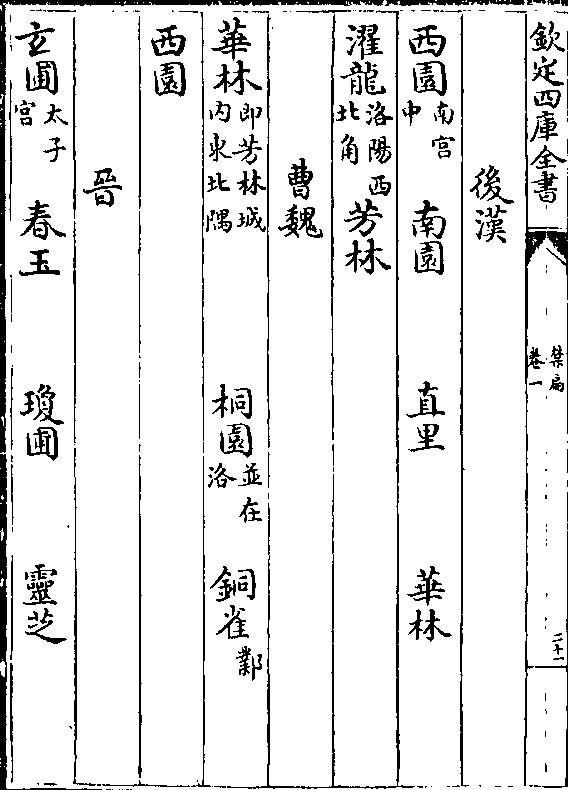 欽定四庫全書
禁扁
卷一
二十一
後漢
西園南宮中 南園 直里 華林
濯龍洛陽西北角 芳林
曹魏
華林即芳林城内東北隅 桐園並在洛 銅雀鄴
西園
晉
玄圃太子宮 春玉 瓊圃 靈芝